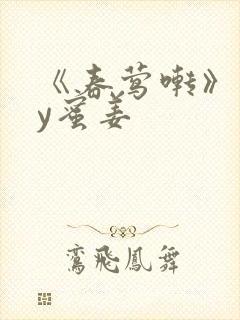 《春莺啭》
y蜜姜
鸾飛鳳舞